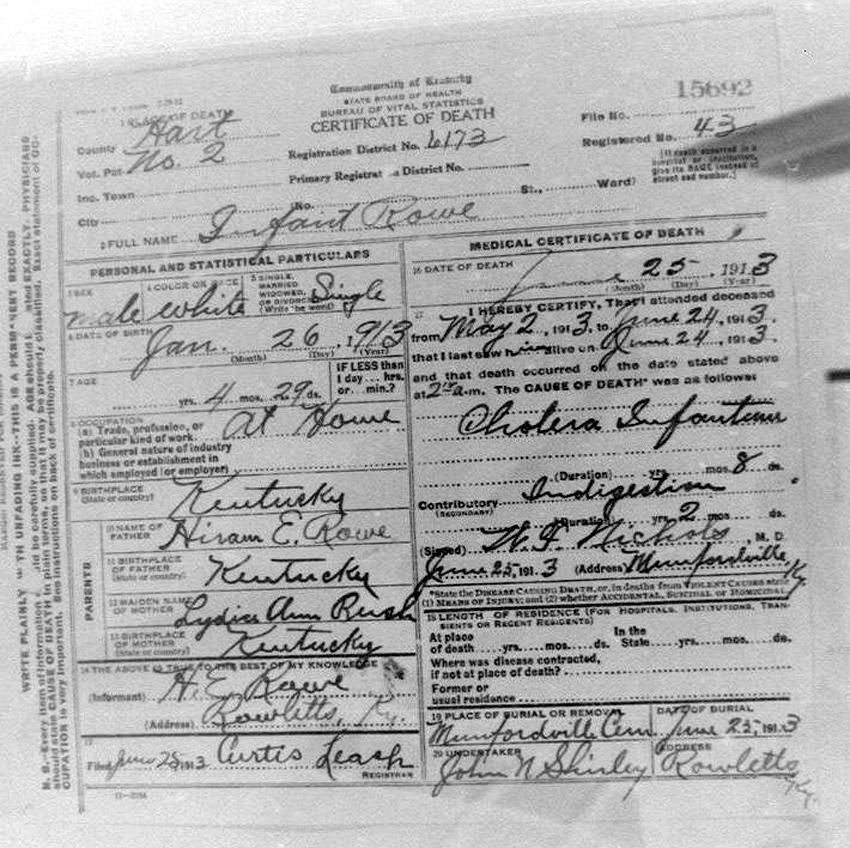 Commonwealth of Kentucky
STATE BOARD OF HEALTH
BUREAU OF VITAL STATISTICS
CERTIFICATE OF DEATH
15692
1 PLACE OF DEATH
County Hart
Vot. Pct. No. 2
Inc. Town
City
Registration District No. 6173
Primary Registration District No.
(No. St., Ward)
File No.
Registered No. 43
[If death occurred in a
hospital or institution,
give its NAME instead of
street and number.]
2 FULL NAME Infant Rowe
PERSONAL AND STATISTICAL PARTICULARS
3 SEX male
4 COLOR OR RACE white
5 SINGLE, MARRIED WIDOWED, OR DIVORCED (Write the word) Single
6 DATE OF BIRTH Jan. 26, 1913
(Month) (Day) (Year)
7 AGE yrs. 4 mos. 29 ds.
IF LESS than
1 day... hrs.
or... min.?
8 OCCUPATION At Home
(a) Trade, profession, or
particular kind of work
(b) General nature of industry
business or establishment in
which employed (or employer)
9 BIRTHPLACE
(State or country) Kentucky
PARENTS
10 NAME OF
FATHER Hiram E. Rowe
11 BIRTHPLACE
OF FATHER
(State or country) Kentucky
12 MAIDEN NAME
OF MOTHER Lydia Ann Rush
13 BIRTHPLACE
OF MOTHER
(State or country) Kentucky
14 THE ABOVE IS TRUE TO THE BEST OF MY KNOWLEDGE
(Informant) H. E. Rowe
(Address) Rowletts, Ky.
15
Filed June 25 1913 Curtis
REGISTRAR
MEDICAL CERTIFICATE OF DEATH
16 DATE OF DEATH June 25, 1913
(Month) (Day) (Year)
17 I HEREBY CERTIFY, That I attended deceased
from May 2, 1913, to June 24, 1913.
that I last saw him alive on June 24, 1913.
and that death occurred on the date stated above
at 2 a.m. The CAUSE OF DEATH* was as follows:
Cholera Infantum
(Duration) yrs. mos. 8 ds.
Contributory Indigestion
(SECONDARY)
(Duration) yrs. 2 mos. ds.
(Signed) Nichols, M. D.
June 25, 1913 (Address) Munfordville Ky
*State the DISEASE CAUSING DEATH, or, in deaths from VIOLENT CAUSES state
(1) MEANS OF INJURY; and (2) whether ACCIDENTAL, SUICIDAL or HOMICIDAL
18 LENGTH OF RESIDENCE (FOR HOSPITALS, INSTITUTIONS, TRAN-
SIENTS OR RECENT RESIDENTS)
At place In the
of death.....yrs.....mos.....ds. State.....yrs.....mos.....ds.
Where was disease contracted,
if not at place of death?
Former or
usual residence
19 PLACE OF BURIAL OR REMOVAL DATE OF BURIAL
Munfordville Cem June 25, 1913
20 UNDERTAKER ADDRESS
John N Shirley Rowletts Ky.
WRITE PLAINLY WITH UNFADING INK--THIS IS A PERMANENT RECORD
N. B.--Every item of information should be carefully supplied. AGE should be stated EXACTLY. PHYSICIANS
should state CAUSE OF DEATH in plain terms, so that it may be properly classified. Exact statement of OC-
CUPATION is very important. See instructions on back of certificate.